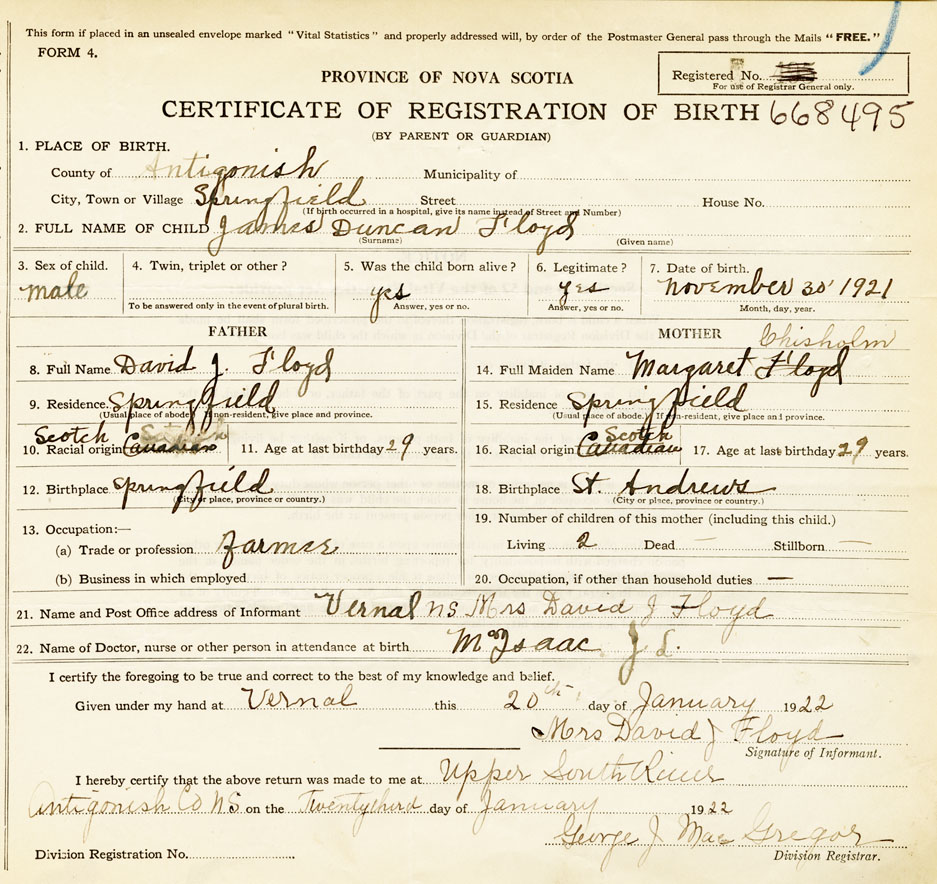 This form if placed in an unsealed envelope marked "Vital Statistics" and properly addressed will, by order of the Postmaster General pass through the Mails "FREE."
FORM 4.
Registered No.
For use of Registrar General only.
PROVINCE OF NOVA SCOTIA
CERTIFICATE OF REGISTRATION OF BIRTH 668495
(BY PARENT OR GUARDIAN)
1. PLACE OF BIRTH.
County of Antigonish Municipality of
City, Town or Village Springfield Street House No.
(If birth occurred in a hospital, give its name instead of Street and Number)
2. FULL NAME OF CHILD James Duncan Floyd
(Surname) (Given name)
3. Sex of child. 4. Twin, triplet or other? 5. Was the child born alive? 6. Legitimate? 7. Date of birth.
male yes yes November 30 1921
To be answered only in the event of plural birth. Answer, yes or no. Answer, yes or no. Month, day, year.
FATHER MOTHER Chisholm
8. Full Name David J. Floyd 14. Full Maiden Name Margaret Floyd
9. Residence. Springfield 15. Residence Springfield
(Usual place of abode.) If non-resident, give place and province. (Usual place of abode.) If non-resident, give place and province.
Scotch Scotch
10. Racial origin Canadian 11. Age at last birthday 29 years. 16. Racial origin Canadian 17. Age at last birthday 29 years.
12. Birthplace Springfield 18. Birthplace St. Andrews
(City or place, province or country.) (City or place, province or country.)
13. Occupation:— 19. Number of children of this mother (including this child.)
(a) Trade or profession Farmer Living 2 Dead — Stillborn —
(b) Business in which employed 20. Occupation, if other than household duties —
21. Name and Post Office address of Informant Vernal NS Mrs David J Floyd
22. Name of Doctor, nurse or other person in attendance at birth McIsaac J L.
I certify the foregoing to be true and correct to the best of my knowledge and belief.
Given under my hand at Vernal this 20th day of January 1922
Mrs David J Floyd
Signature of Informant.
I hereby certify that the above return was made to me at Upper South River
Antigonish Co NS on the Twentythird day of January 1922
George J MacGregor
Division Registrar.
Division Registration No.